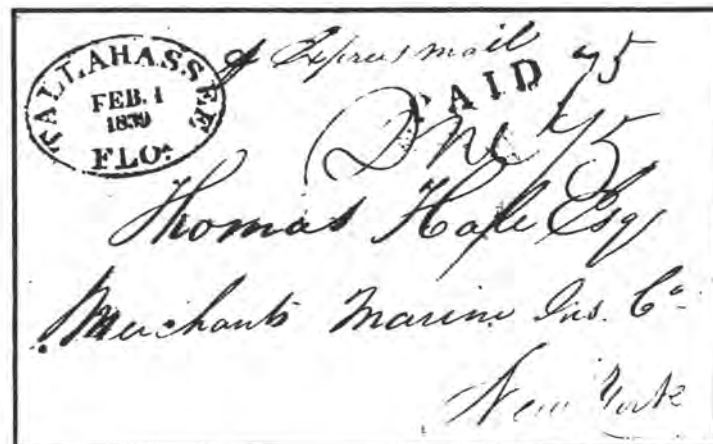 TALLAHASSEE
FEB. 1
1839
FLOA.
Express mail
PAID 75
Due 75
Thomas Hale Esq
Merchants Marine Ins. Co
New York